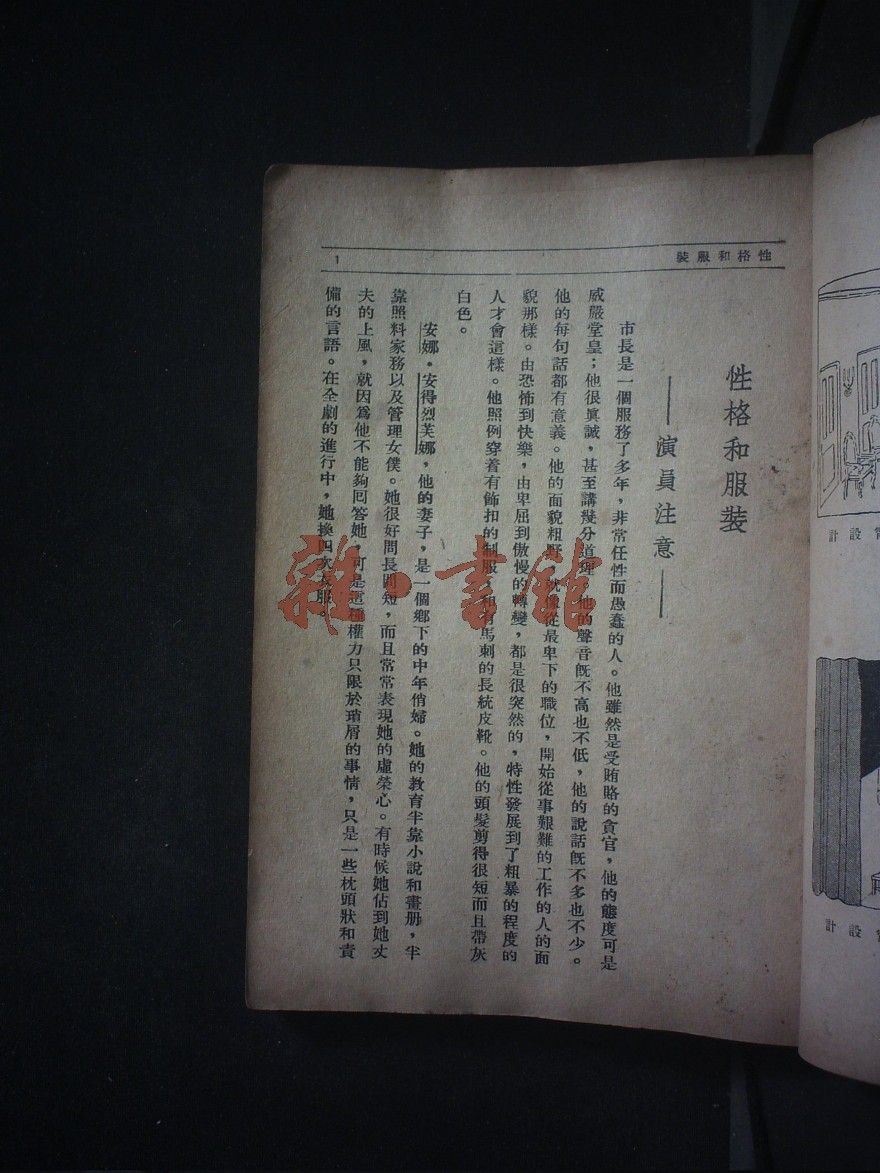 性格和服裝
1
性格和服裝
——演員注意——
市長是一個服務了多年，非常任性而愚蠢的人。他雖然是受賄賂的貪官，他的態度可是
威嚴堂皇；他很眞誠，甚至講幾分道理。他的聲音旣不高也不低，他的說話旣不多也不少。
他的每句話都有意義。他的面貌粗野，就像從最卑下的職位，開始從事艱難的工作的人的面
貌那樣。由恐怖到快樂，由卑屈到傲慢的轉變，都是很突然的，特性發展到了粗暴的程度的
人才會這樣。他照例穿着有飾扣的制服，和有馬刺的長統皮靴。他的頭髮剪得很短而且帶灰
白色。
安娜·安得烈芙娜，他的妻子，是一個鄉下的中年俏婦。她的教育半靠小說和畫册，半
靠照料家務以及管理女僕。她很好問長問短，而且常常表現她的虛榮心。有時候她佔到她丈
夫的上風，就因爲他不能夠囘答她，可是這種權力只限於瑣屑的事情，只是一些枕頭狀和責
備的言語。在全劇的進行中，她換四次衣服。
雜·書館
設計
設計